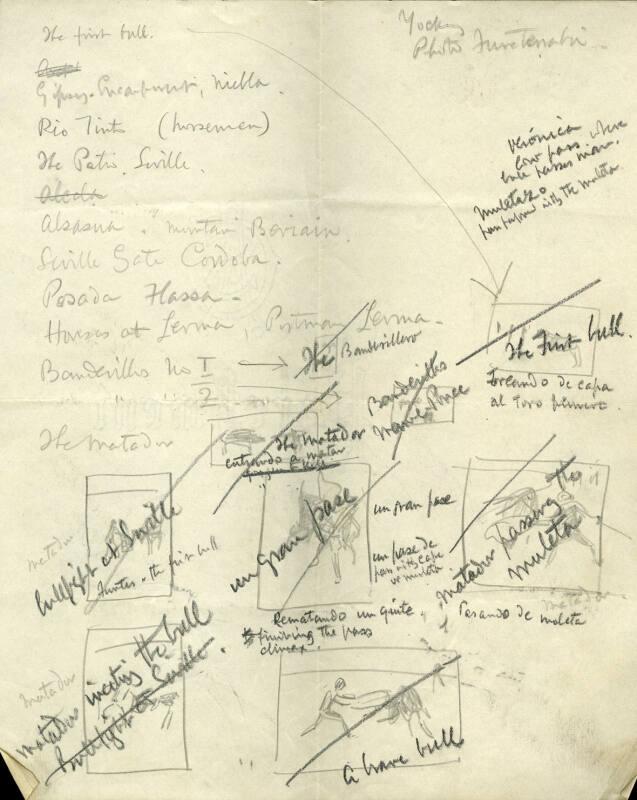 The first bull.
Gipsy Encampment, Niebla.
Rio Tinto (horsemen)
The Patio, Seville.
Alsasua. mountain Beriain.
Seville Gate Cordoba.
Posada Hassa.
Horses at Lerma, Postman Lerma.
Banderillas No I/2
The Banderillero
The Matador
Photo
verónica
low pass where
bull passes man.
muletazo
pass with the muleta
The First bull.
Toreando de capa
al toro primero
Banderillas
The Matador
entrando a matar
Bullfight at Seville
the first bull
un gran pase
un gran pase
un pase de
pass with cape
or muleta
Rematando un quite.
finishing the pass
climax.
matador passing
muleta
Pasando de muleta
matador
matador
matador inviting the bull
Bullfight at Seville
A brave bull